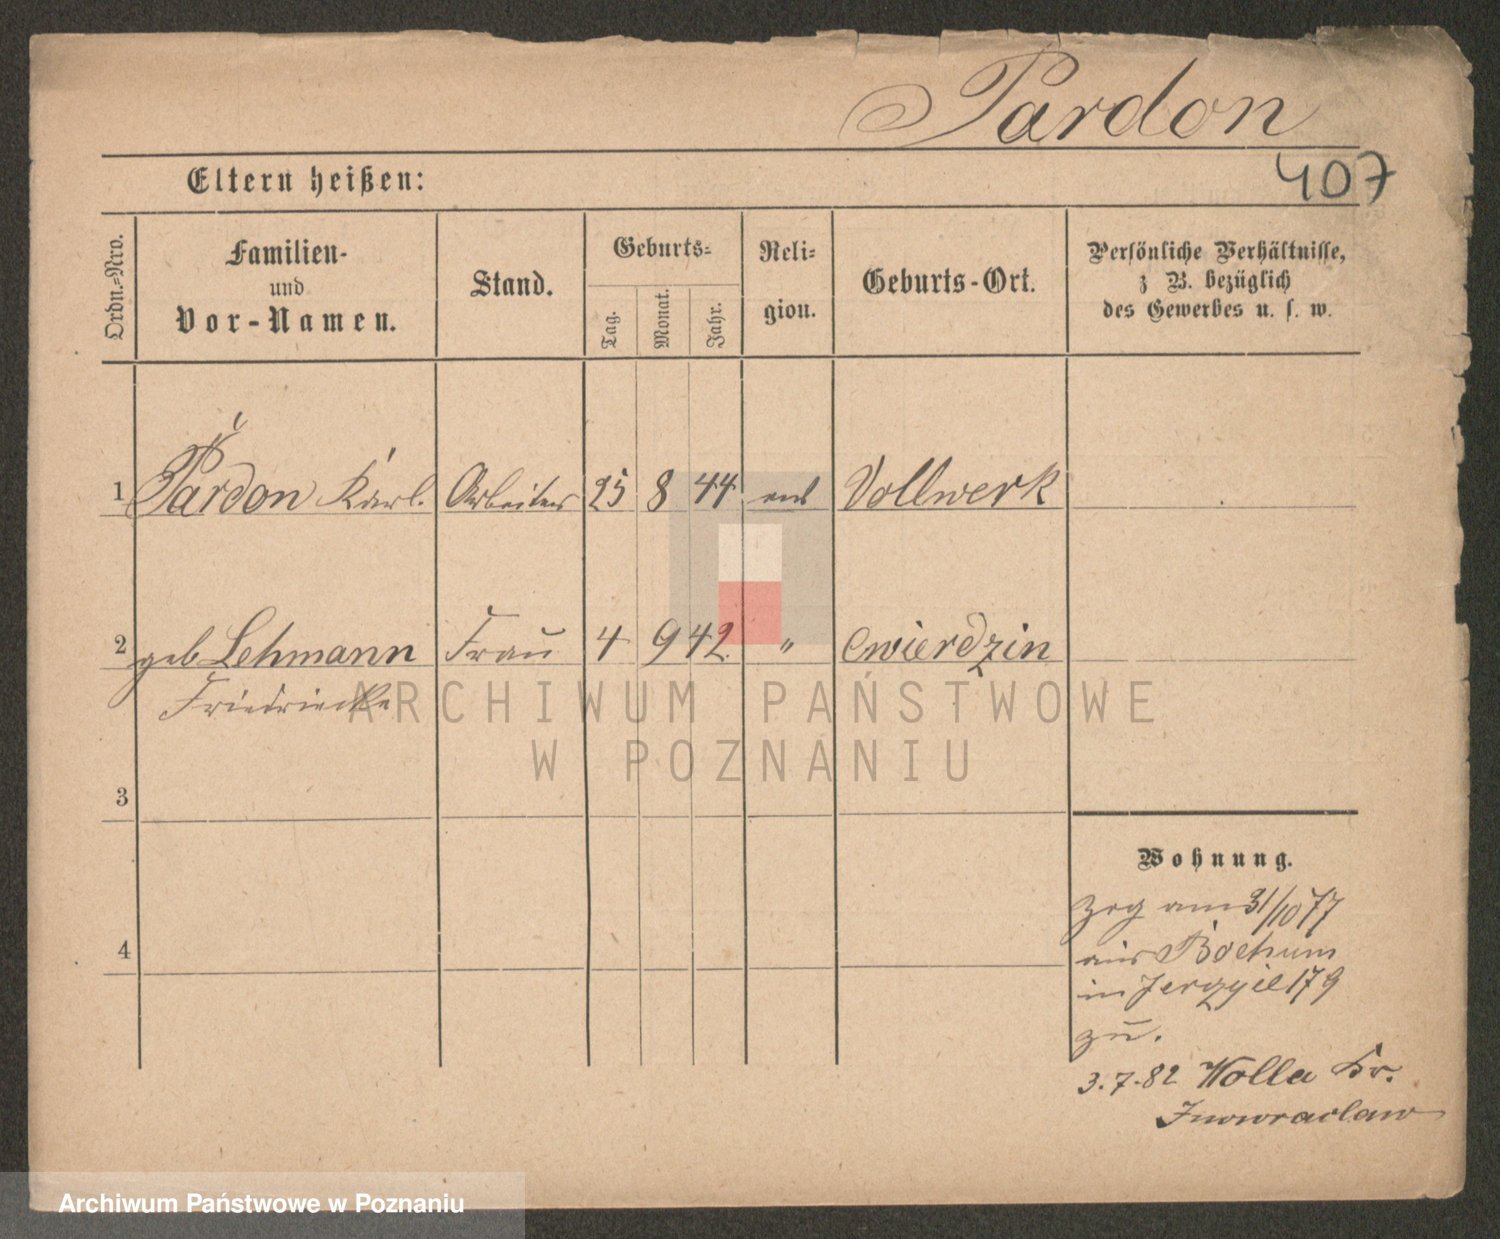 Pardon
407
Eltern heißen:
Ordn.=Nro.
Familien-
und
Vor-Namen.
Stand.
Geburts=
Tag.
Monat.
Jahr.
Reli=
gion.
Geburts-Ort.
Persönliche Verhältnisse,
z B. bezüglich
des Gewerbes u. s. w.
1 Pardon Karl. Arbeiter 25 8 44 Vollwerk
2 geb Lehmann Frau 4 9 42 " Cwierdzin
Friedriecke
ARCHIWUM PAŃSTWOWE
W POZNANIU
3
4
Wohnung.
Zog am 31/10 77
aus Bochum
in 179
zu.
3.7.82 Wolla Kr.
Inowraclaw
Archiwum Państwowe w Poznaniu